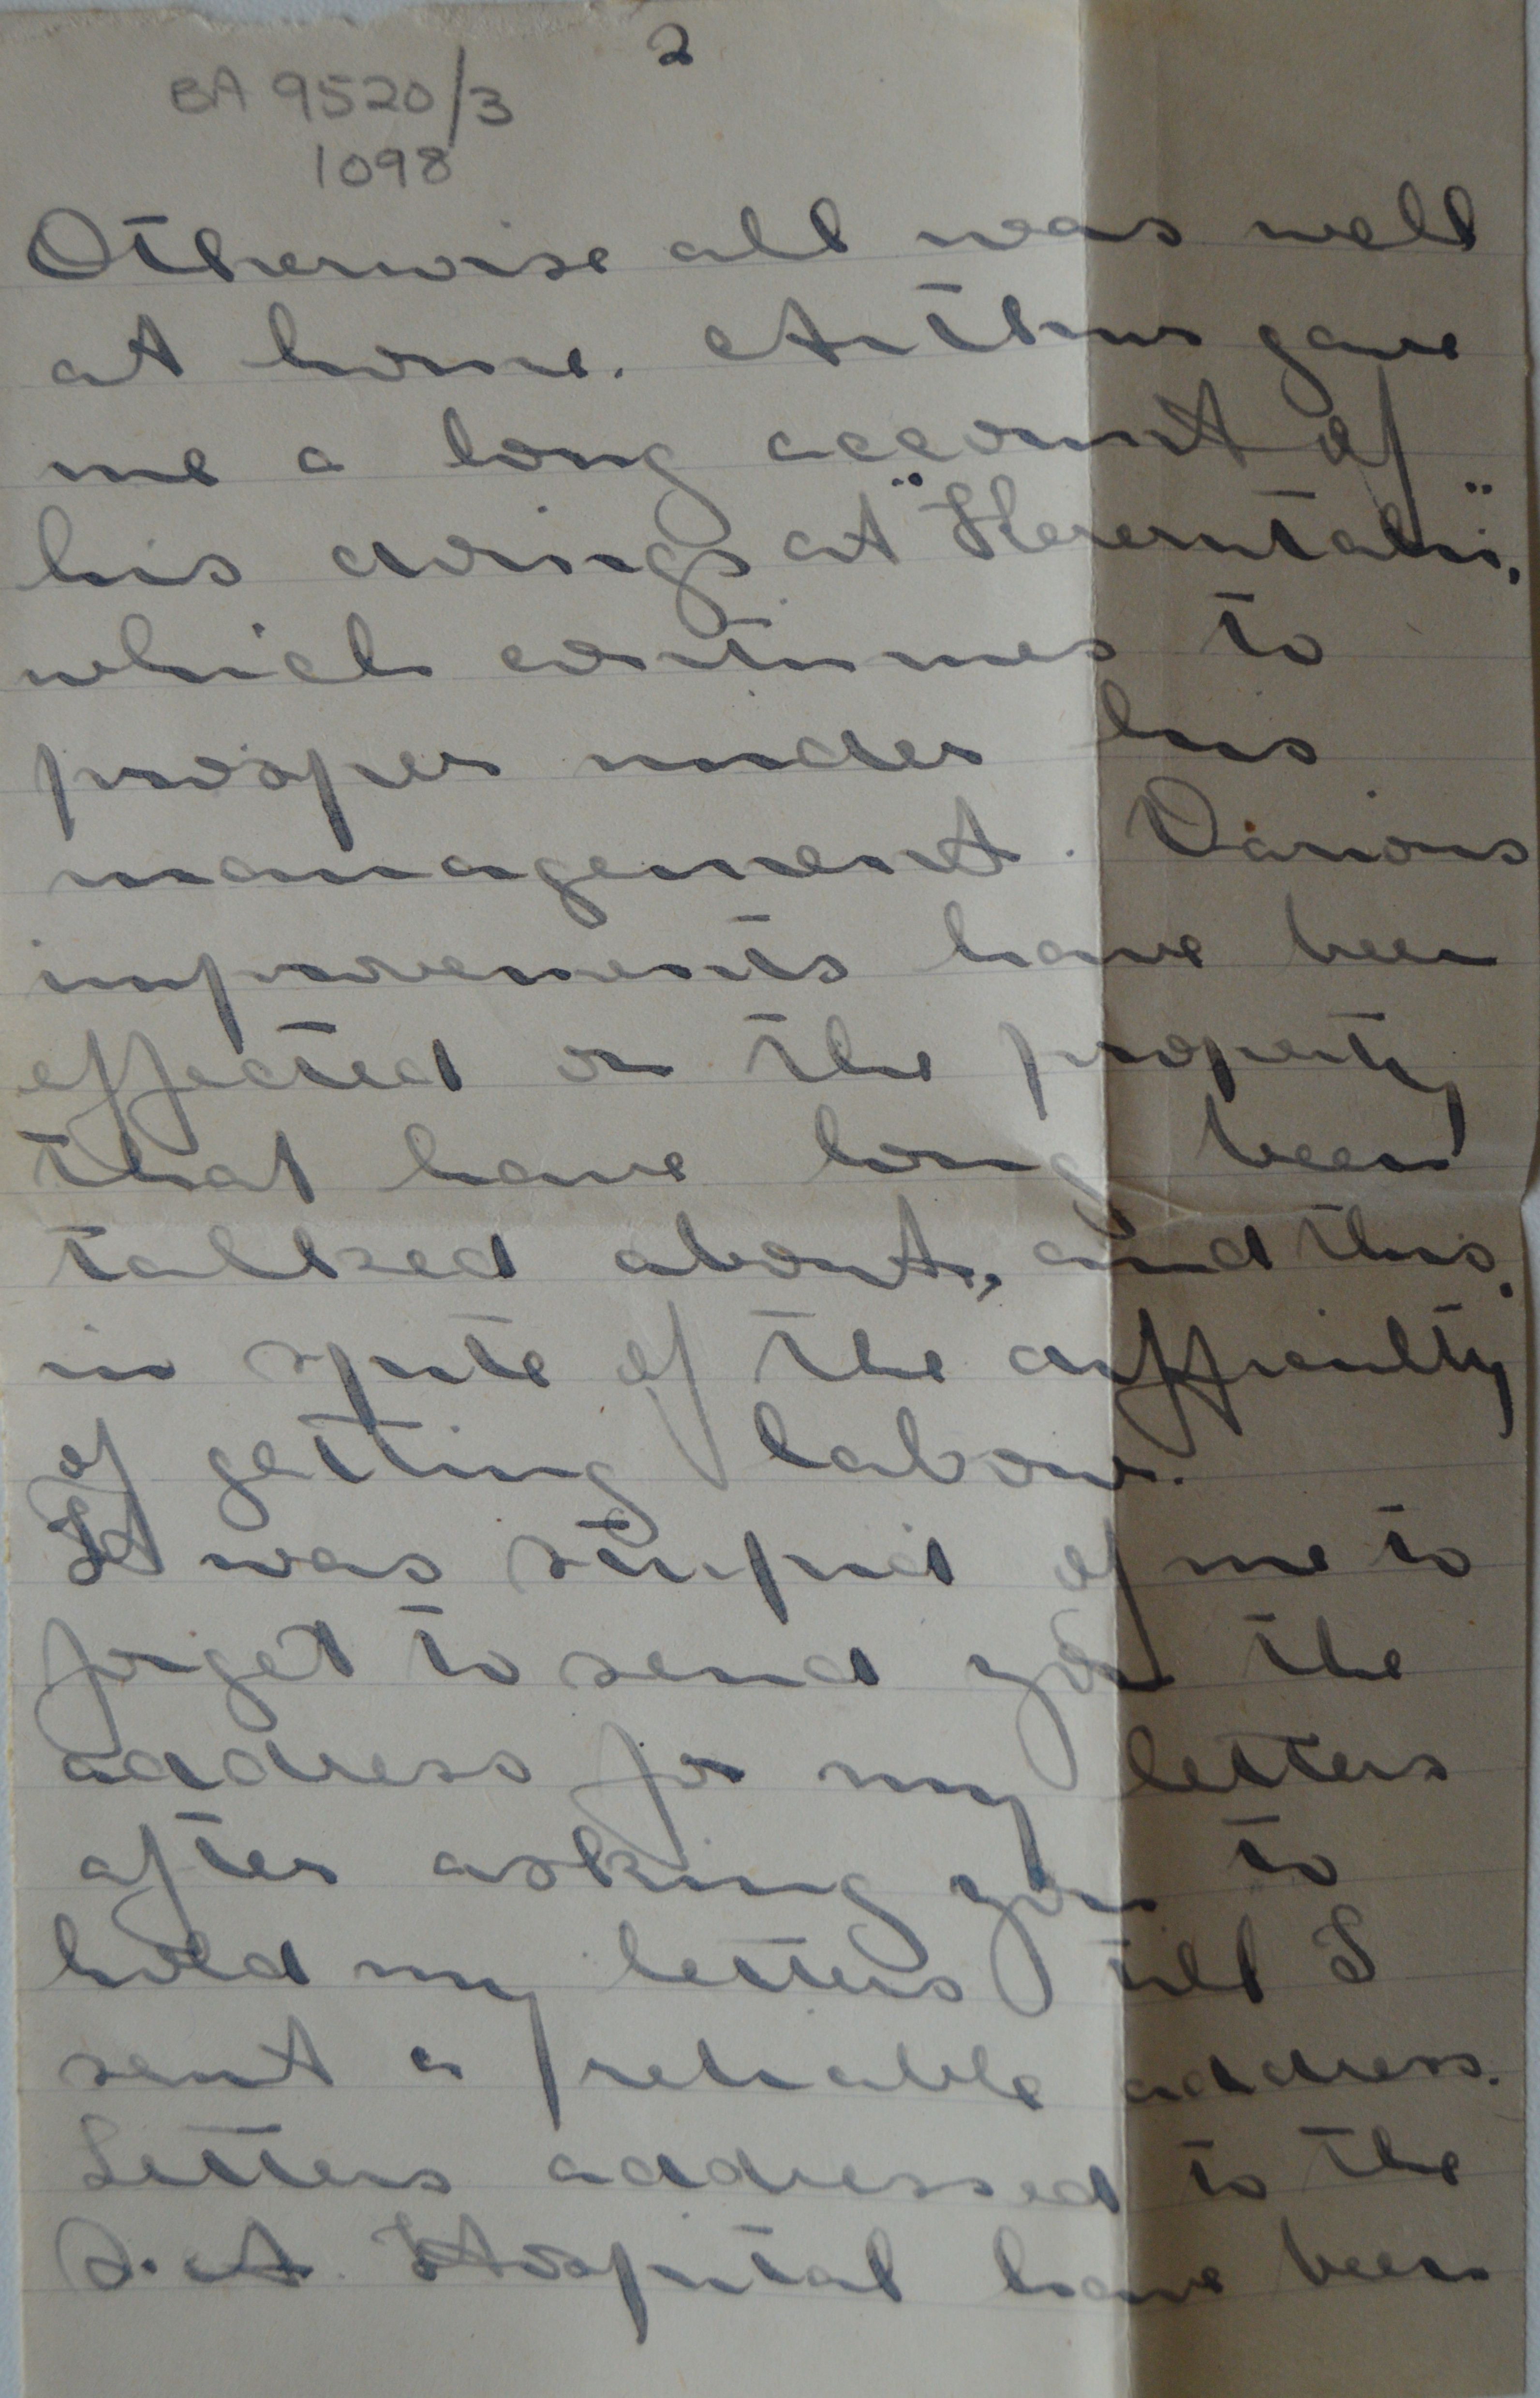 2
BA 9520/3
1098
Otherwise all was well
at home. Arthur gave
me a long account of
his doings at
which continues to
prosper under his
management. Various
improvements have been
effected on the property
that have long been
talked about, and this,
in spite of the difficulty
of getting labour.
It was stupid of me to
forget to send you the
address for my letters
after asking you to
hold my letters till I
sent a reliable address.
Letters addressed to the
S.A. Hospital have been